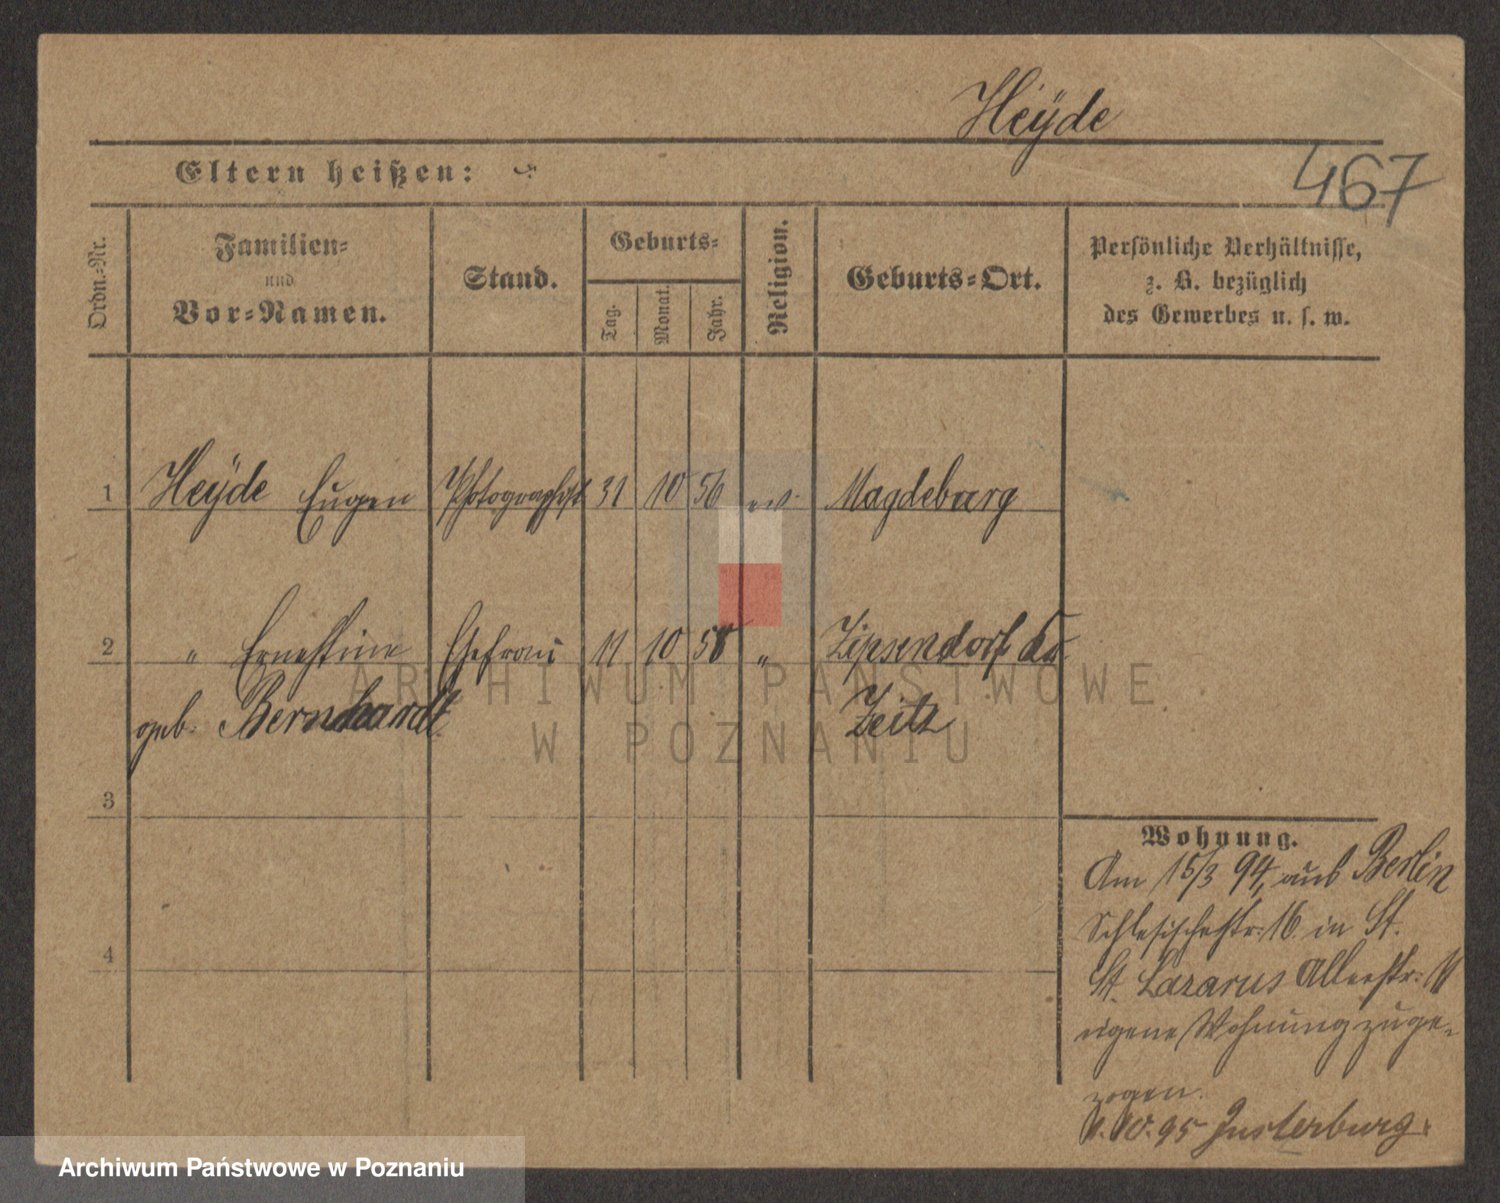 Heÿde
467
Eltern heißen:
Ordn.-Nr.
Familien-
und
Vor-Namen.
Stand.
Geburts-
Tag.
Monat.
Jahr.
Religion.
Geburts-Ort.
Persönliche Verhältnisse,
z. B. bezüglich
des Gewerbes u. s. w.
1 Heÿde Eugen Photograph 31 10 56 ev. Magdeburg
2 " Ernestine Ehefrau 11 10 58 " Zipsendorf Kr.
geb. Bernhardt Zeitz
3
4
Wohnung.
Am 15/3 94, aus Berlin
Schlesischestr. 16. in St.
St. Lazarus Alleestr. 11
eigene Wohnung zuge-
zogen.
1. 10. 95 Insterburg
ARCHIWUM PAŃSTWOWE
W POZNANIU
Archiwum Państwowe w Poznaniu